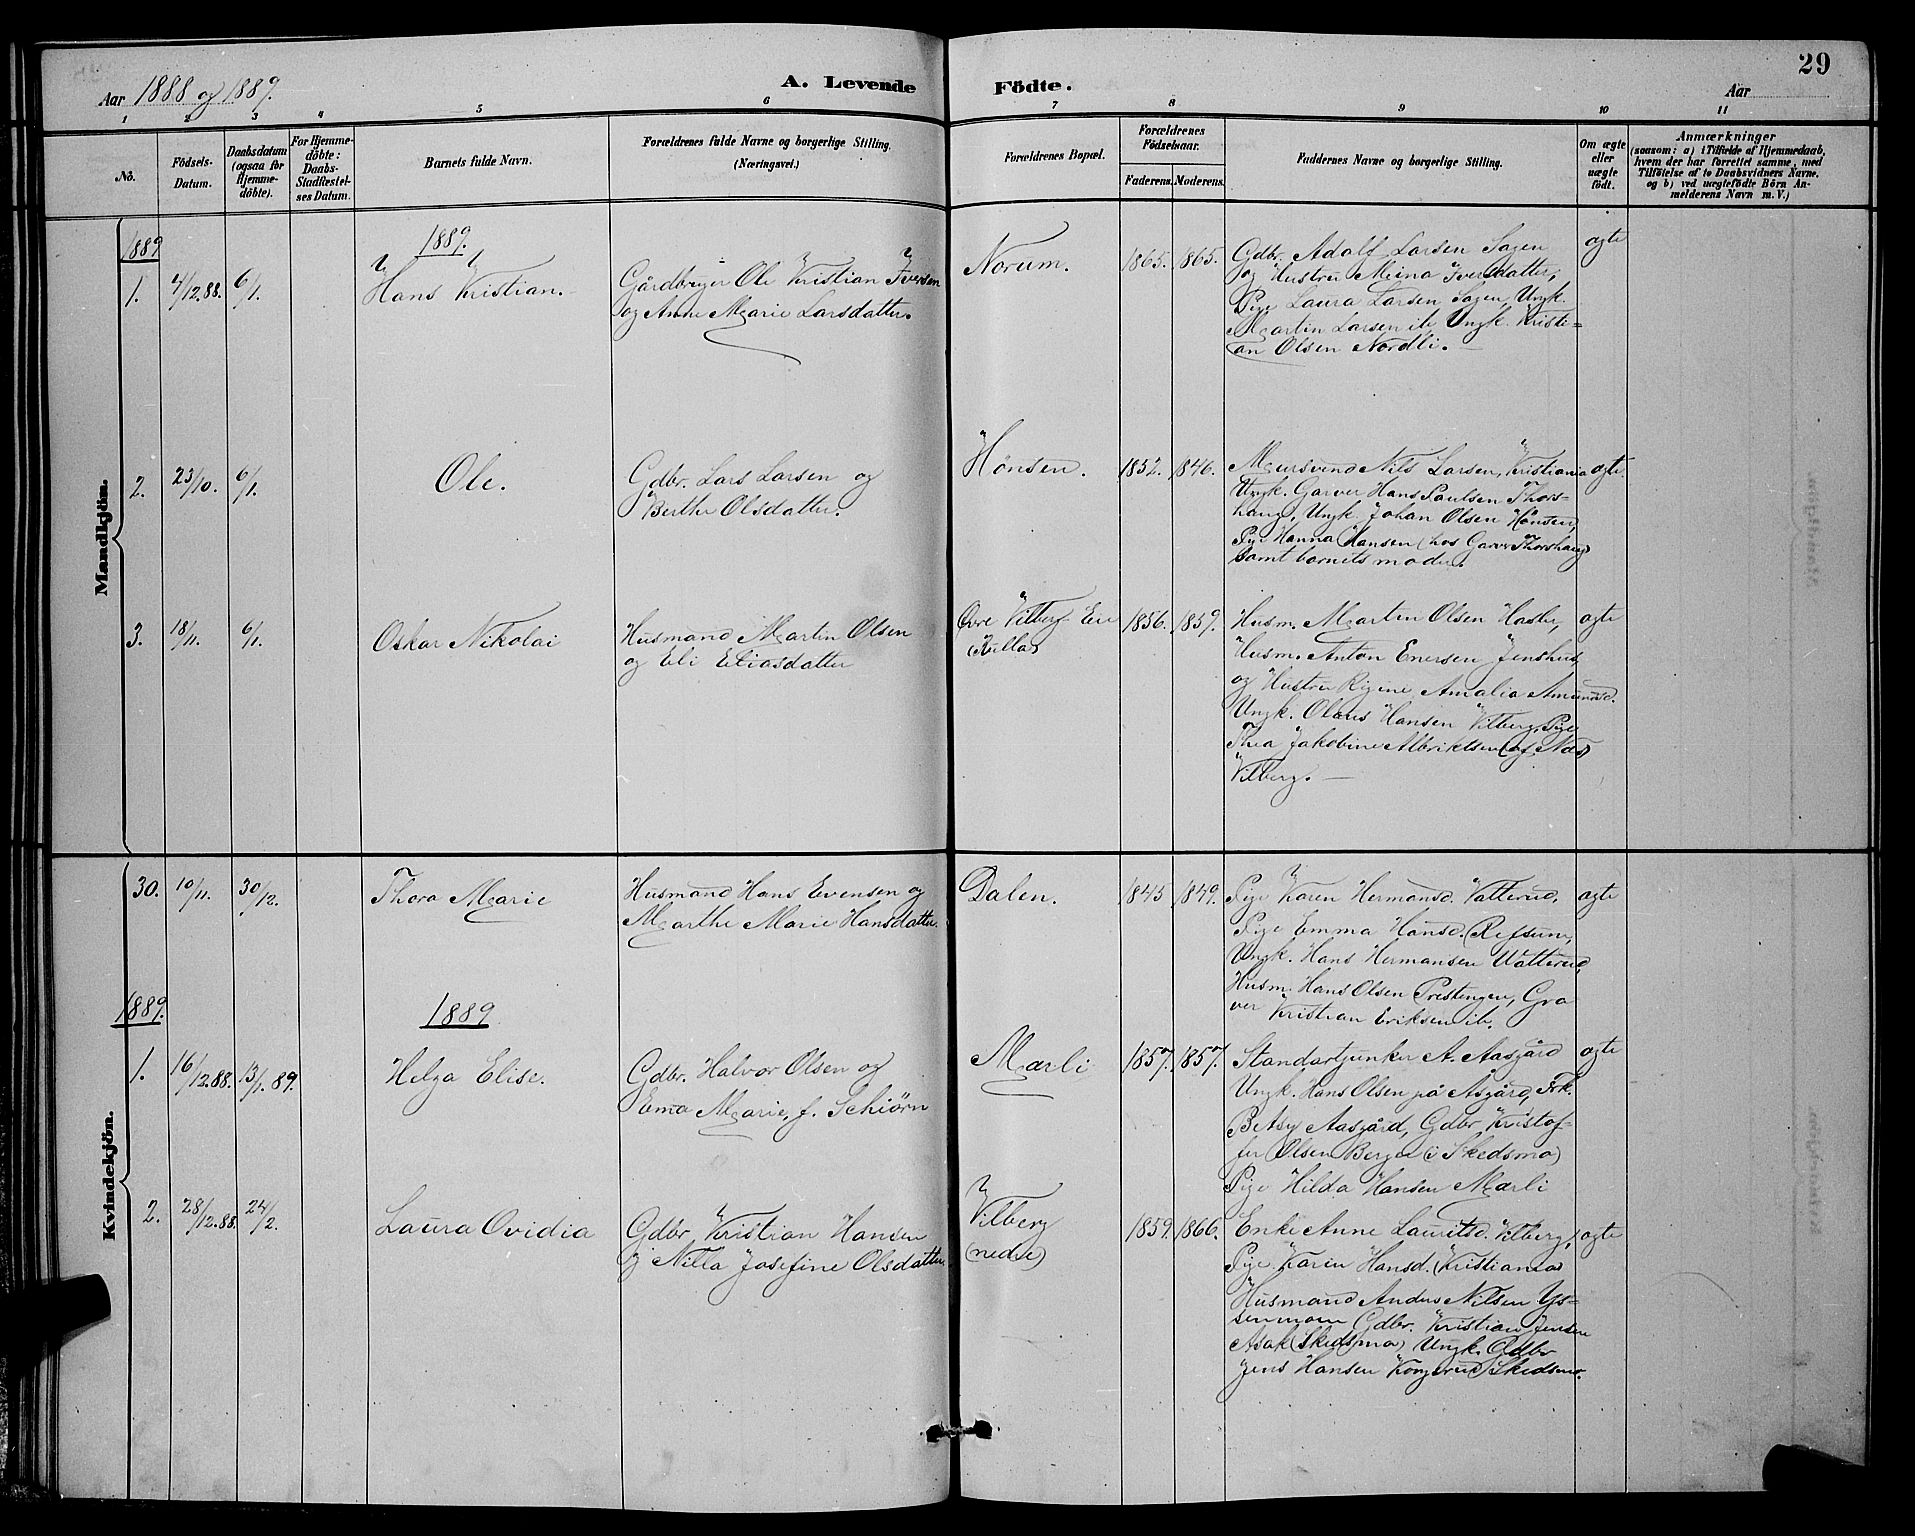 29
Aar 1888 og 1889. A. Levende Födte. Aar
1 2 3 4 5 6 7 8 9 10 11
No. Födsels-Datum. Daabsdatum (ogsaa for Hjemmedöbte). For Hjemmedöbte: Daabs-Stadfestelses Datum. Barnets fulde Navn. Forældrenes fulde Navne og borgerlige Stilling. (Næringsvei.) Forældrenes Bopæl. Forældrenes Födselsaar. Faderens. Moderens. Faddernes Navne og borgerlige Stilling. Om ægte eller uægte födt. Anmærkninger (saasom: a) i Tilfælde af Hjemmedaab, hvem der har forrettet samme, med Tilföielse af to Daabsvidners Navne, og b) ved uægtefödte Börn Anmelderens Navn m. V.)
Mandkjön.
1889 1889.
1. 4/12.88. 6/1. Hans Kristian. Gårdbruger Ole Kristian Iversen
og Anne Marie Larsdatter.
Norum. 1865. 1865. Gdbr. Adolf Larsen Sagen
og Hustru Meina Iversdatter,
Pige Laura Larsen Sagen, Ungk.
Martin Larsen ib. Ungk. Kristi-
an Olsen Nordli.
ægte
2. 23/10. 6/1. Ole. Gdbr. Lars Larsen og
Berthe Olsdatter.
Hønsen. 1852. 1846. Mursvend Nils Larsen, Kristiania
Ungk. Garver Hans Paulsen Thors-
haug, Ungk. Johan Olsen Hønsen,
Pige Hanna Hansen (hos Garver Thorshaug)
samt barnets moder.
ægte.
3. 18/11. 6/1. Oskar Nikolai Husmand Martin Olsen
og Eli Eliasdatter
Øvre Vilberg Eie
1856. 1859. Husm. Martin Olsen Hasler,
Husm. Anton Enersen Jenshus,
og Hustru Regine Amalia Amundsd.
Ungk. Olaus Hansen Vilberg, Pige
Thea Jakobine Albriktsen (af Næs)
Vilberg.
ægte
Kvindekjön.
30. 10/11. 30/12. Thora Marie Husmand Hans Evensen og
Marthe Marie Hansdatter.
Dalen. 1845 1849. Pige Karen Hermansd. Vatterud,
Pige Emma Hansd. Refsum,
Ungk. Hans Hermansen Vatterud,
Husm. Hans Olsen Prestengen, Gra
ver Kristian Eriksen ib.
ægte
1889. 1889
1. 16/12.88. 13/1.89. Helga Elise. Gdbr. Halvor Olsen og
Ema Marie, f. Schiørn
Marli 1857. 1857. Standartjunker A. Aasgård
Ungk. Hans Olsen på Asgård, Frk.
Betsy Aasgård, Gdbr. Kristof-
fer Olsen Berger (i Skedsmo)
Pige Hilda Hansen Marli
ægte
2. 28/12.88. 24/2. Laura Ovidia Gdbr. Kristian Hansen
og Nilla Josefine Olsdatter.
Vilberg
(nedre)
1859. 1866. Enke Anne Lauritsd. Vilberg,
Pige Karen Hansd. (Kristiania)
Husmand Anders Nilsen Ys-
senmoen Gdbr. Kristian Jensen
Asak (Skedsmo) Ungk. Gdbr
Jens Hansen Kongerud i Skedsmo.
ægte